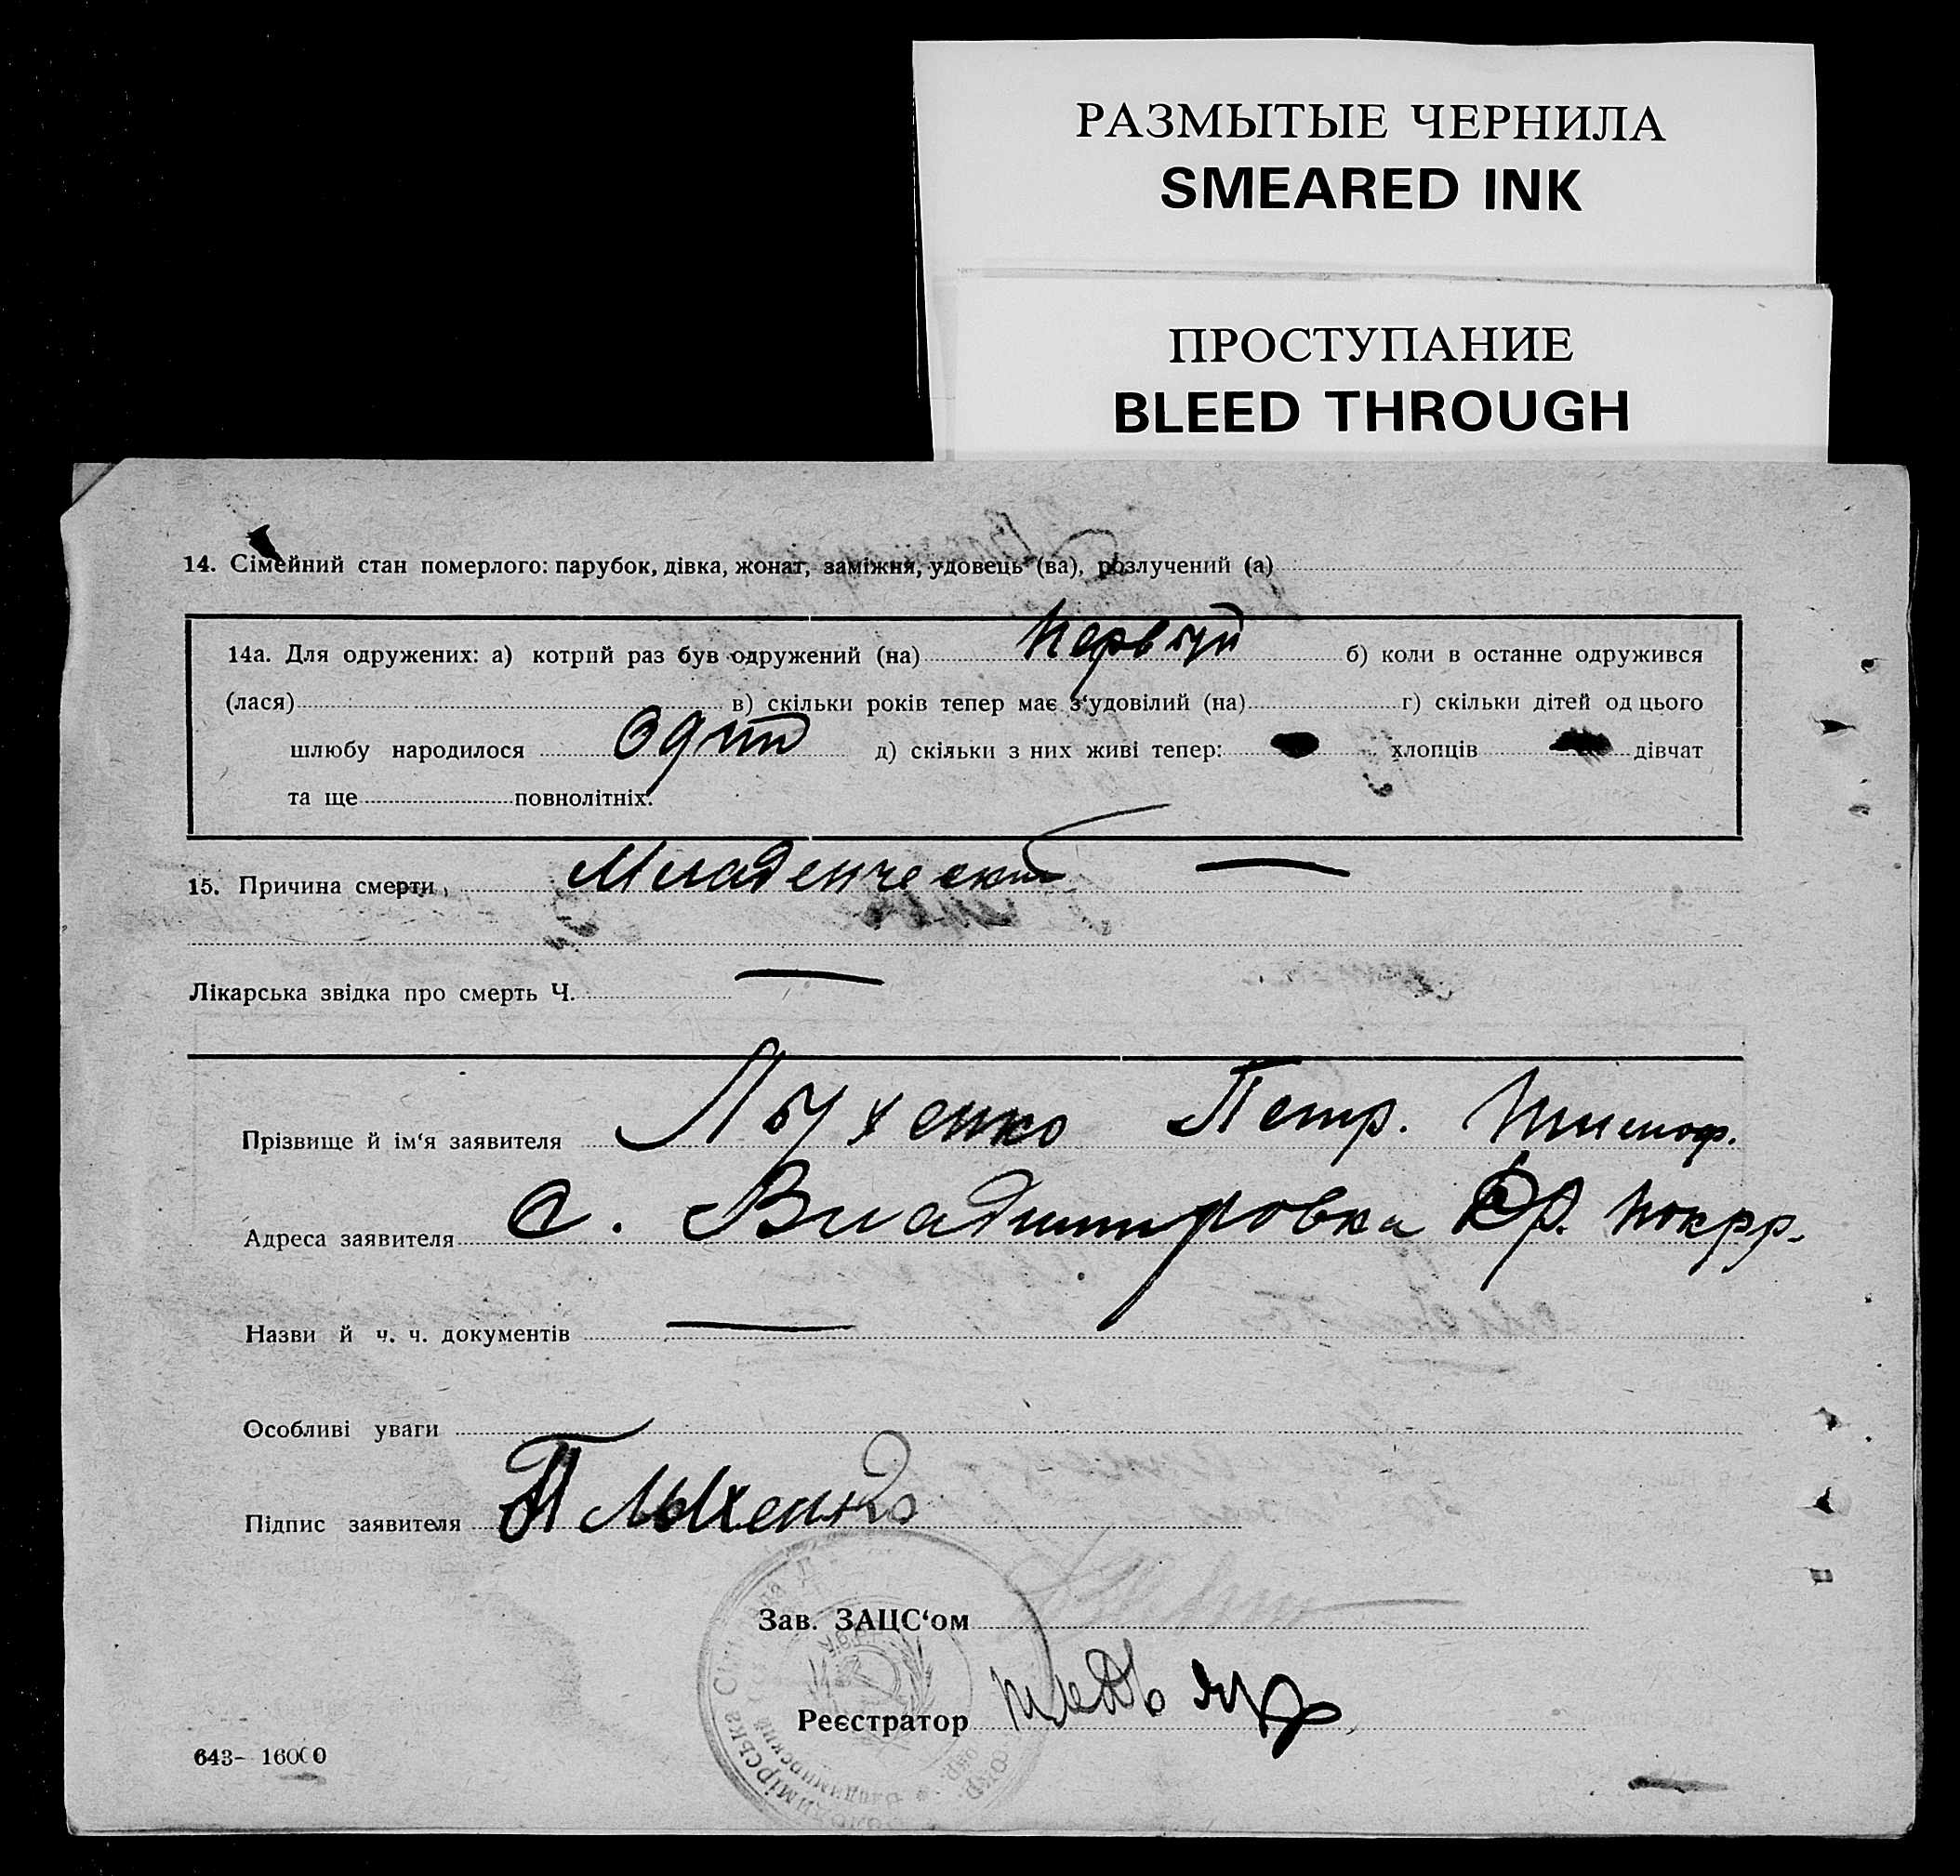 РАЗМЫТЫЕ ЧЕРНИЛА
SMEARED INK
ПРОСТУПАНИЕ
BLEED THROUGH
14. Сімейний стан померлого: парубок, дівка, жонат, заміжня, удовець (ва), розлучений (а)
14а. Для одружених: а) котрий раз був одружений (на) Первый б) коли в останне одружився
(лася) в) скільки років тепер має з‘удовілий (на) г) скільки дітей од цього
шлюбу народилося один д) скільки з них живі тепер: хлопців дівчат
та ще повнолітніх.
15. Причина смерти Младенческ
Лікарська звідка про смерть Ч.
Прізвище й ім‘я заявителя Лыхенко Петр. Тимоф.
Адреса заявителя с. Владимировка Покрр.
Назви й ч. ч. документів
Особливі уваги
Підпис заявителя П Лыхенко
Зав. ЗАЦС‘ом
Реєстратор
643— 16000